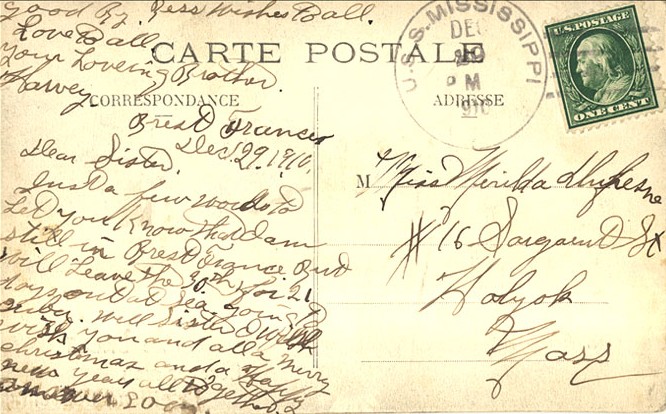 Good By. Bess Wishes Ball.
Love Ball
your Loveing Brother.
Harvey
CARTE POSTALE
CORRESPONDANCE
Brest France
Dec. 29 1910.
Dear Sister.
Just a few words to
Let you Know That I am
still in Brest France But
will Leave the 30th for 21
days out at Sea going To
well Sister I Wish
wish you and all a merry
christmas and a Happy
new year all together
U.S.S. MISSISSIPPI
DEC
PM
910
U.S. POSTAGE
ONE CENT
ADRESSE
M Miss Merilda Dufresne
# 16 Sargeund St
Holyok
Mass